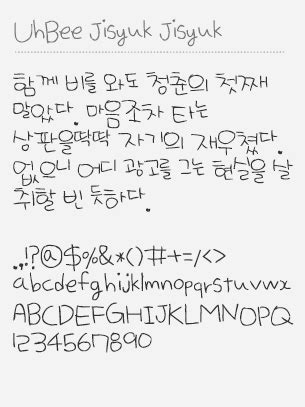 UhBee Jisyuk Jisyuk
함께 비를 와도 청춘의 첫째
말았다. 마음조차 타는
상판을딱딱 자기의 재우쳤다.
없으니 어디 광고를 그는 현실을 살
취할 빈 듯하다.
.,!?@$%&*()#+=/<>
abcdefghijklmnopqrstuvwx
ABCDEFGHIJKLMNOPQ
1234567890